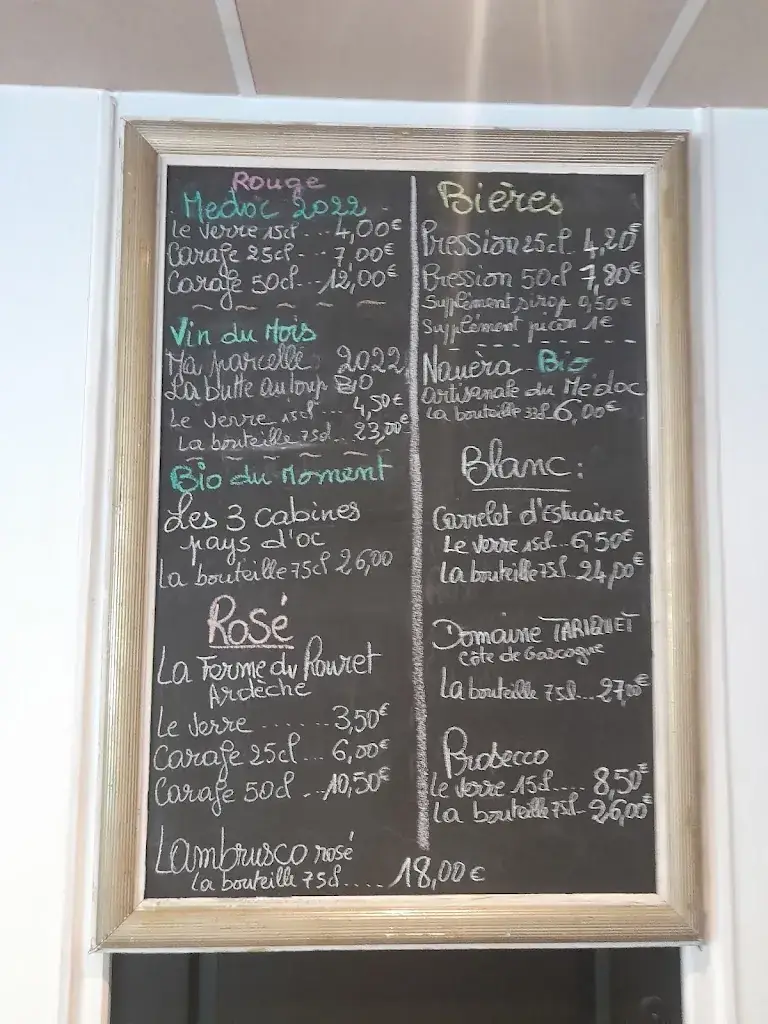 Rouge
Medoc 2022
Le verre 15cl ... 4,00€
Carafe 25cl ... 7,00€
Carafe 50cl ... 12,00€
Vin du Mois
Ma parcelle 2022
La butte au loup BIO
Le verre 15cl 4,50€
La bouteille 75cl.. 23,00€
Bio du Moment
Les 3 cabines
pays d'oc
La bouteille 75cl 26,00
Rosé
La Ferme du Pouret
Ardèche
Le verre ....... 3,50€
Carafe 25cl ... 6,00€
Carafe 50cl .. 10,50€
Lambrusco rosé
La bouteille 75cl..... 18,00€
Bières
Pression 25cl 4,20€
Pression 50cl 7,80€
Suplément sirop 0,50€
Supplément picon 1€
Nauèra Bio
artisanale du Médoc
La bouteille 33cl 6,00€
Blanc :
Carrelet d'Estuaire
Le verre 15cl... 6,50€
La bouteille 75cl.. 24,00€
Domaine TARIQUET
Côte de Gascogne
La bouteille 75cl... 27,00€
Prosecco
Le verre 15cl..... 8,50€
La bouteille 75cl- 26,00€